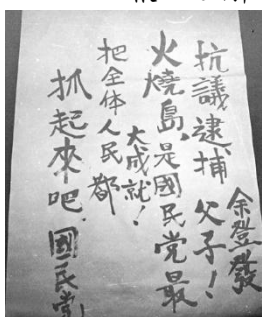 抗議逮捕余登發父子！
火燒島，是國民党最
大成就！
把全体人民都
抓起來吧，國民党！